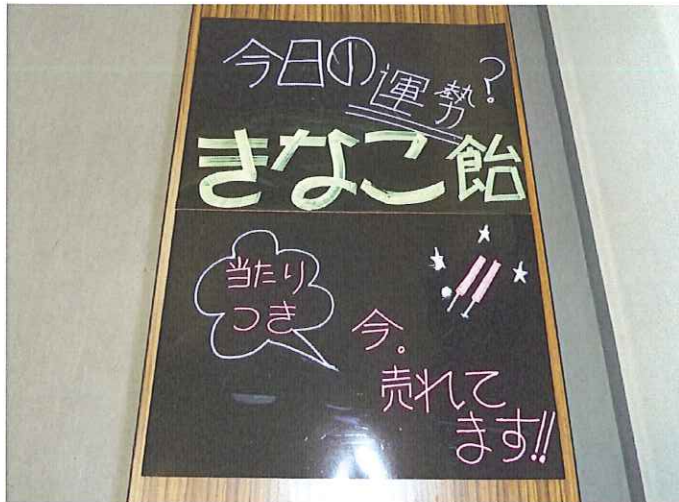 今日の運勢?
きなこ飴
当たり
つき
今。
売れて
ます!!